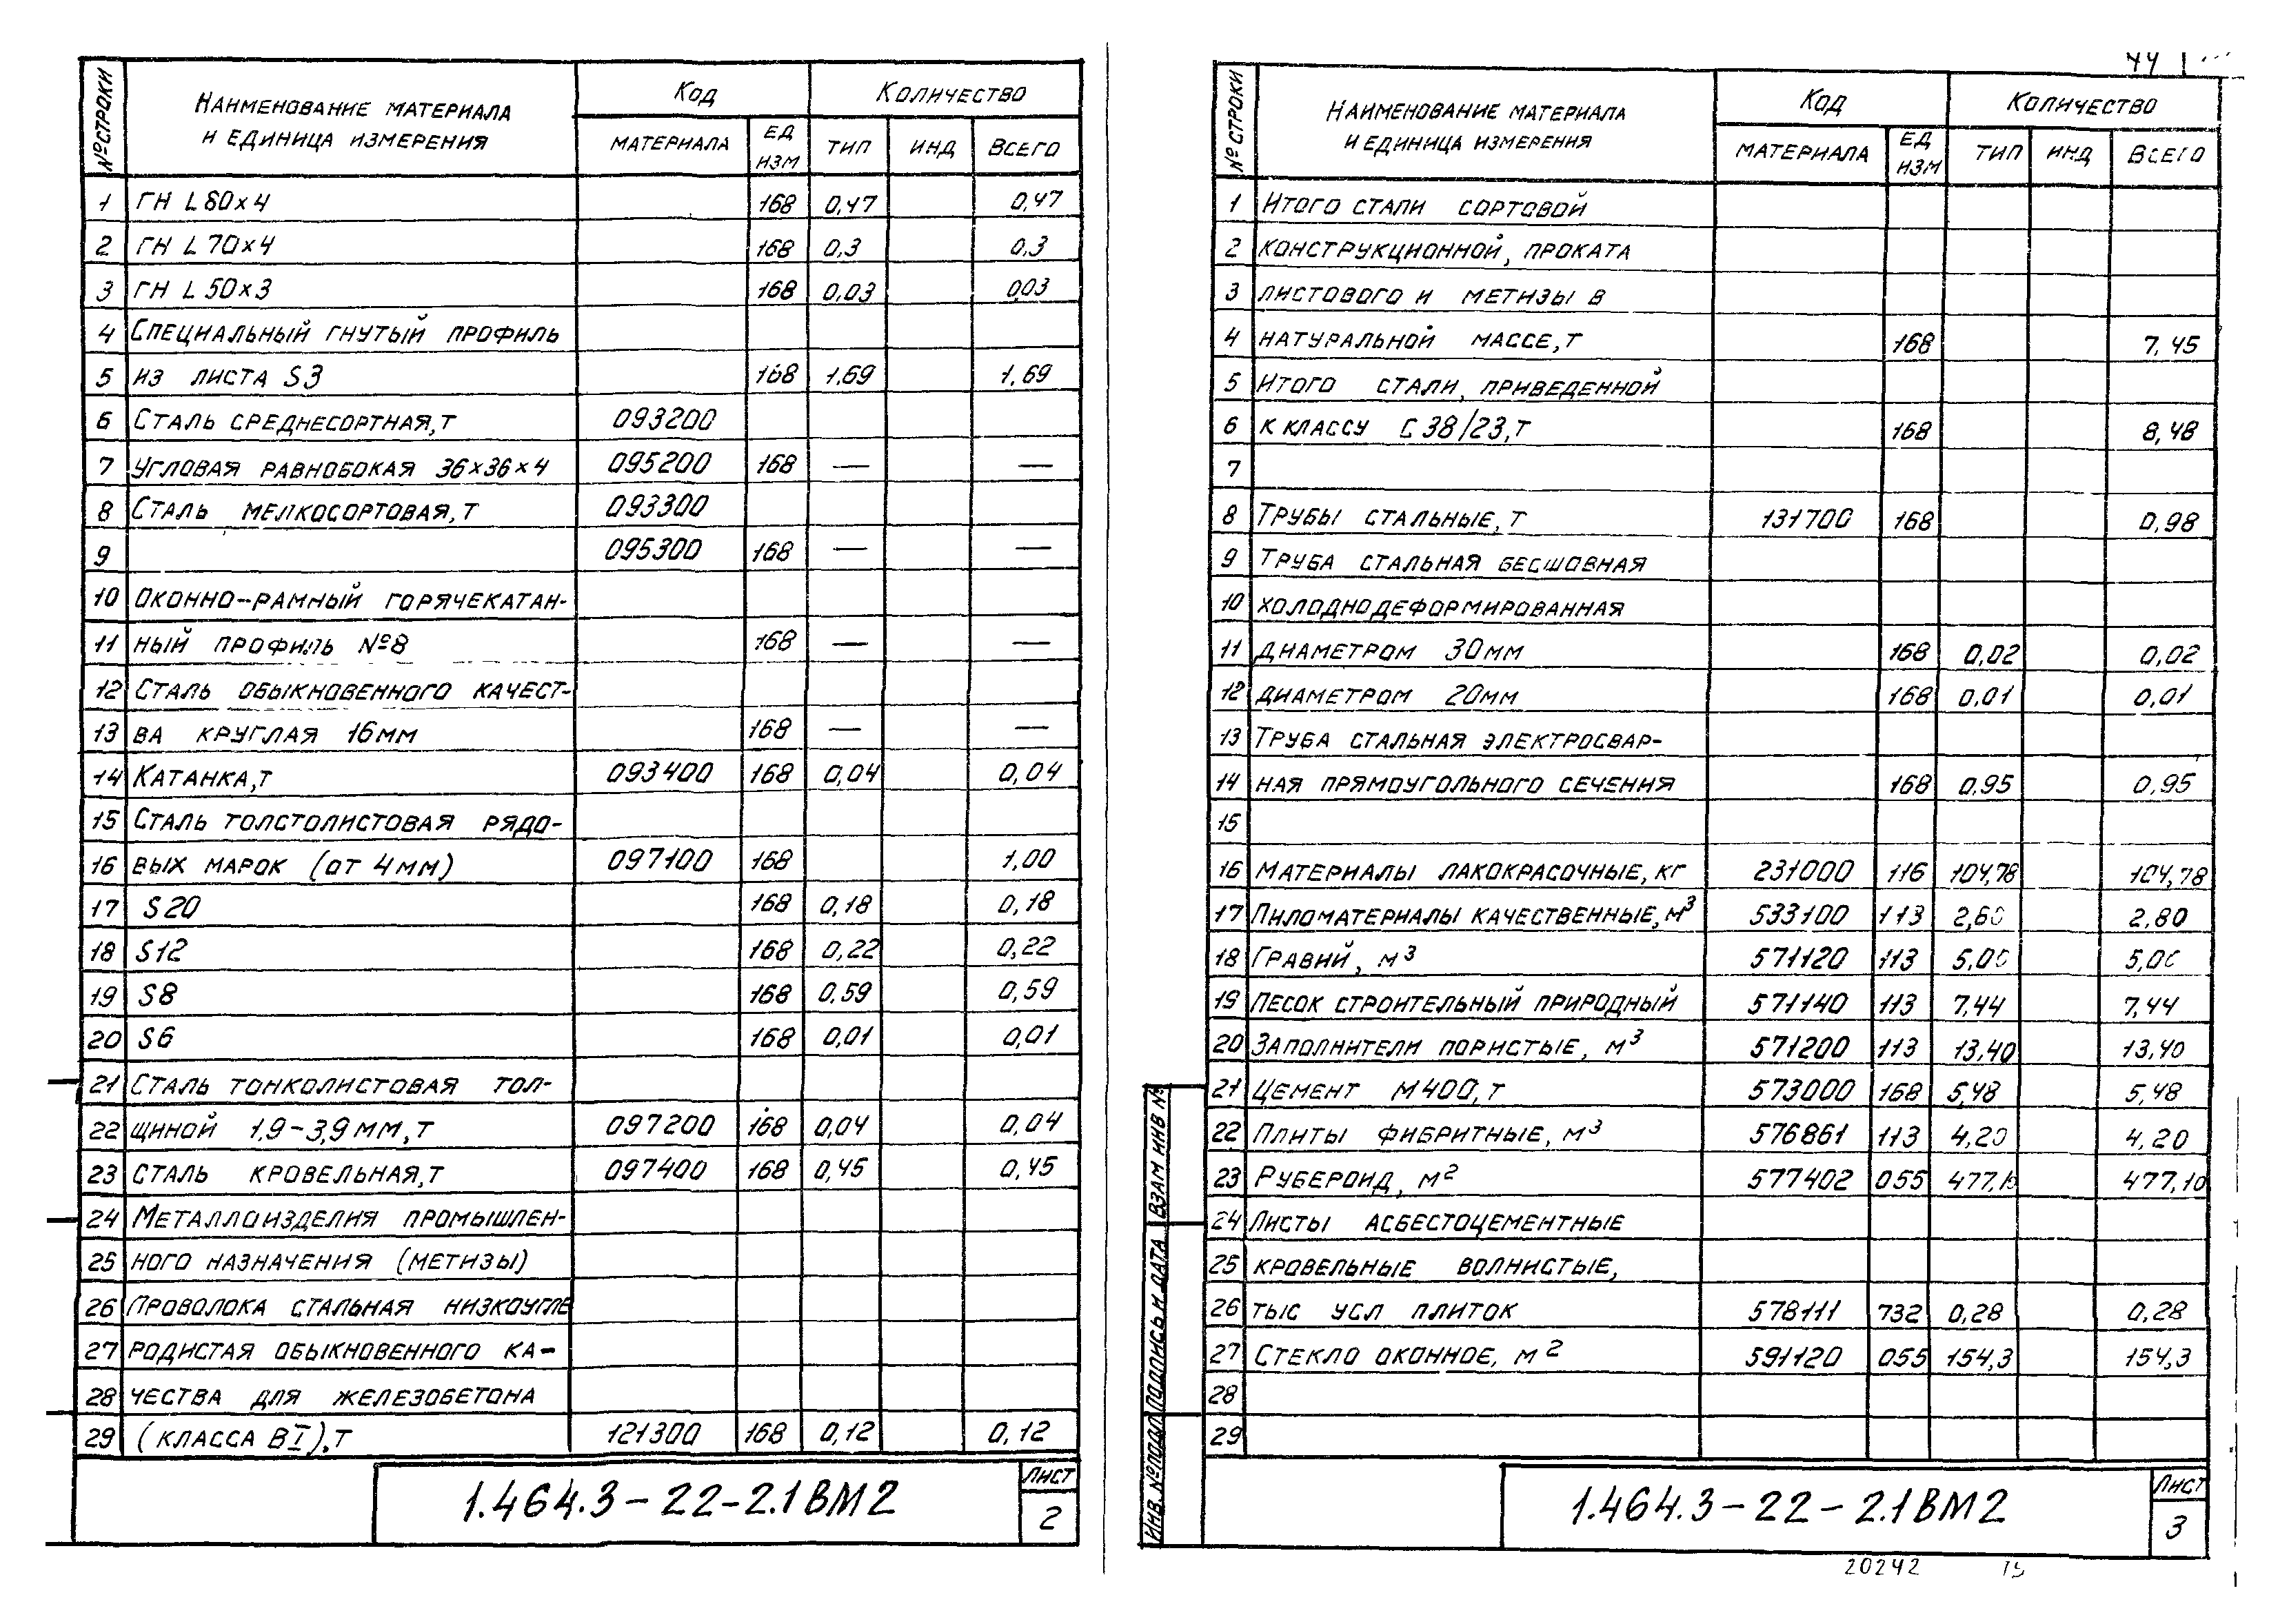 № строки | Наименование материала и единица измерения | Код | Количество
материала | ед изм | тип | инд | всего
1 ГН L 80×4 168 0,47 0,47
2 ГН L 70×4 168 0,3 0,3
3 ГН L 50×3 168 0,03 0,03
4 Специальный гнутый профиль
5 из листа S3 168 1,69 1,69
6 Сталь среднесортная, т 093200
7 Угловая равнобокая 36×36×4 095200 168 — —
8 Сталь мелкосортовая, т 093300
9 095300 168 — —
10 Оконно-рамный горячекатан-
11 ный профиль №8 168 — —
12 Сталь обыкновенного качест-
13 ва круглая 16мм 168 — —
14 Катанка, т 093400 168 0,04 0,04
15 Сталь толстолистовая рядо-
16 вых марок (от 4мм) 097100 168 1,00
17 S20 168 0,18 0,18
18 S12 168 0,22 0,22
19 S8 168 0,59 0,59
20 S6 168 0,01 0,01
21 Сталь тонколистовая тол-
22 щиной 1,9-3,9мм, т 097200 168 0,04 0,04
23 Сталь кровельная, т 097400 168 0,45 0,45
24 Металлоизделия промышлен-
25 ного назначения (метизы)
26 Проволока стальная низкоугле
27 родистая обыкновенного ка-
28 чества для железобетона
29 (класса ВI), т 121300 168 0,12 0,12
1.464.3-22-2.1ВМ2
Лист
2
44
№ строки | Наименование материала и единица измерения | Код | Количество
материала | ед изм | тип | инд | всего
1 Итого стали сортовой
2 конструкционной, проката
3 листового и метизы в
4 натуральной массе, т 168 7,45
5 Итого стали, приведенной
6 к классу С38/23, т 168 8,48
7
8 Трубы стальные, т 131700 168 0,98
9 Труба стальная бесшовная
10 холоднодеформированная
11 диаметром 30мм 168 0,02 0,02
12 диаметром 20мм 168 0,01 0,01
13 Труба стальная электросвар-
14 ная прямоугольного сечения 168 0,95 0,95
15
16 Материалы лакокрасочные, кг 231000 116 104,78 104,78
17 Пиломатериалы качественные, м³ 533100 113 2,80
18 Гравий, м³ 571120 113 5,00 5,00
19 Песок строительный природный 571140 113 7,44 7,44
20 Заполнители пористые, м³ 571200 113 13,40 13,40
21 Цемент М400, т 573000 168 5,48 5,48
22 Плиты фибритные, м³ 576861 113 4,20 4,20
23 Рубероид, м² 577402 055 477,10 477,10
24 Листы асбестоцементные
25 кровельные волнистые,
26 тыс усл плиток 578111 732 0,28 0,28
27 Стекло оконное, м² 591120 055 154,3 154,3
28
29
Взам инв №
Подпись и дата
Инв. № подл
1.464.3-22-2.1ВМ2
Лист
3
20242